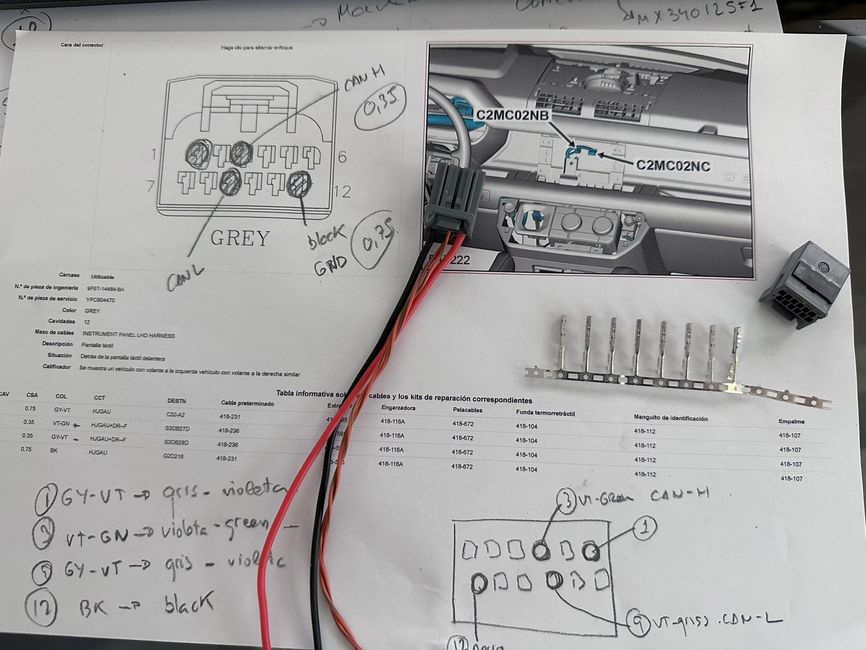 MX340125F1
Cara del conector
Haga clic para alternar enfoque
CAN H
0,35
1
6
7
12
GREY
black
GND
0,75
CAN L
C2MC02NB
C2MC02NC
222
Carcasa Utilizable
N.º de pieza de ingeniería 9F6T-14489-BA
N.º de pieza de servicio YPC604470
Color GREY
Cavidades 12
Mazo de cables INSTRUMENT PANEL LHD HARNESS
Descripción Pantalla táctil
Situación Detrás de la pantalla táctil delantera
Calificador Se muestra un vehículo con volante a la izquierda vehículo con volante a la derecha similar
Tabla informativa cables y los kits de reparación correspondientes
CAV CSA COL CCT DESTN Cable preterminado Engarzadora Pelacables Funda termorretráctil Manguito de identificación Empalme
0.75 GY-VT HJGAU C32-A2 418-231 418-116A 418-672 418-104 418-112 418-107
0.35 VT-GN HJGAU+DR--F S3DB27D 418-236 418-116A 418-672 418-104 418-112 418-107
0.35 GY-VT HJGAU+DR--F S3DB28D 418-236 418-116A 418-672 418-104 418-112 418-107
0.75 BK HJGAU G2D216 418-231 418-116A 418-672 418-104 418-112 418-107
1 GY-VT → gris - violeta
3 VT-GN → violota - green
9 GY-VT → gris - violetc
12 BK → black
3 VT-Green CAN-H
1
9 VT-griss. CAN-L
12